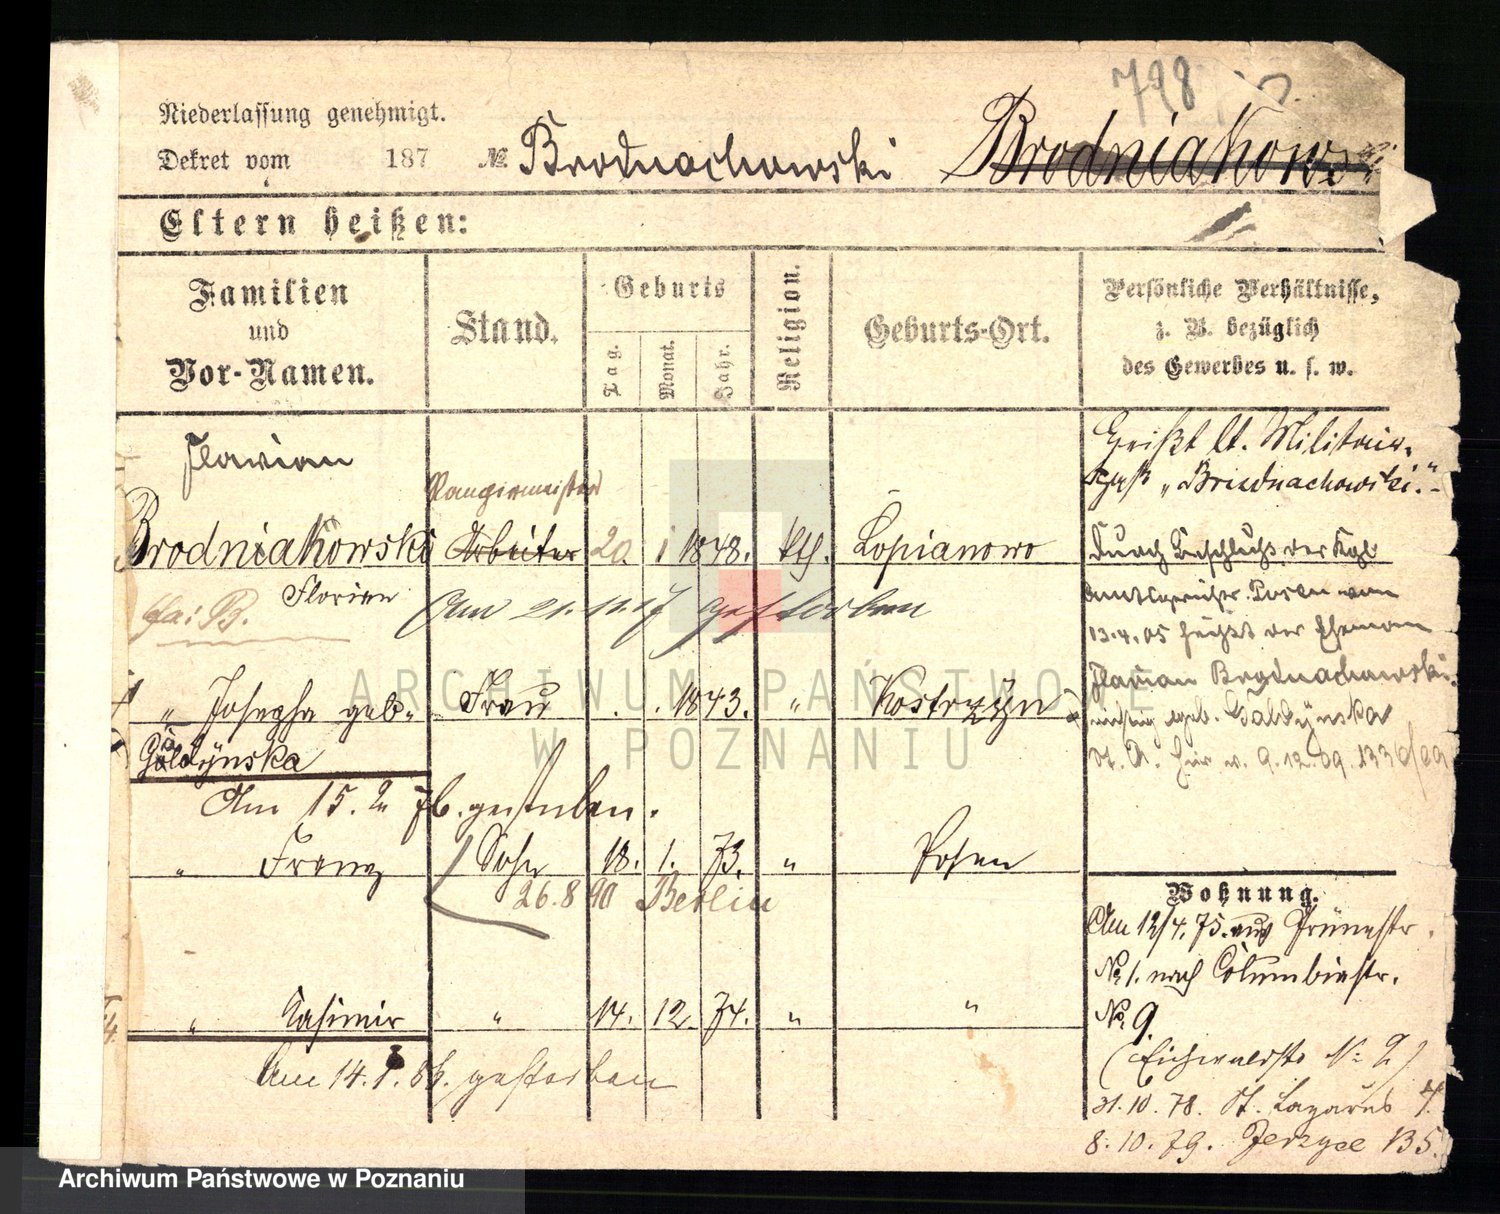 798
Niederlassung genehmigt.
Dekret vom 187 № Brodnachowski Brodniakowski
Eltern heißen:
Familien und Vor-Namen.
Stand.
Geburts
Tag.
Monat.
Jahr.
Religion.
Geburts-Ort.
Persönliche Verhältnisse, z. B. bezüglich des Gewerbes u. s. w.
Florian
Rangirmeister
Brodniakowski Arbeiter 20. 1 1848. kth. Lopianowo
Florian
fa: B.
Am 21. 11. 17 gestorben
" Josepha geb. Frau 1843. " Kostrzyn
Galdynska
Am 15. 2 76. gestorben.
" Franz Sohn 18. 1. 73. " Posen
26.8 90 Berlin
" Kasimir " 14. 12. 74. " "
Am 14. 1. 86. gestorben
Heißt lt. Militair-
paß „Brodnachowski."
Durch Beschluß des Kgl.
Amtsgerichts Posen vom
13.4.05 heißt der Ehemann
Florian Brodnachowski
geb. Galdynska
9.12.09.
Wohnung.
Am 12/4. 75. aus Grünestr.
No. 1. nach Columbiastr.
No. 9.
(Eichwaldstr No 2)
31.10.78. St. Lazarus 4.
8.10.79. Jerzyce 135.
ARCHIWUM PAŃSTWOWE
W POZNANIU
Archiwum Państwowe w Poznaniu